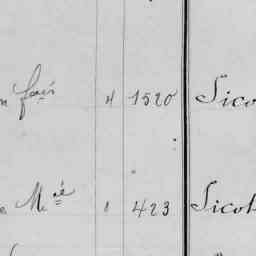 n fois 4 1520 Sico
M ié 1 423 Sicot